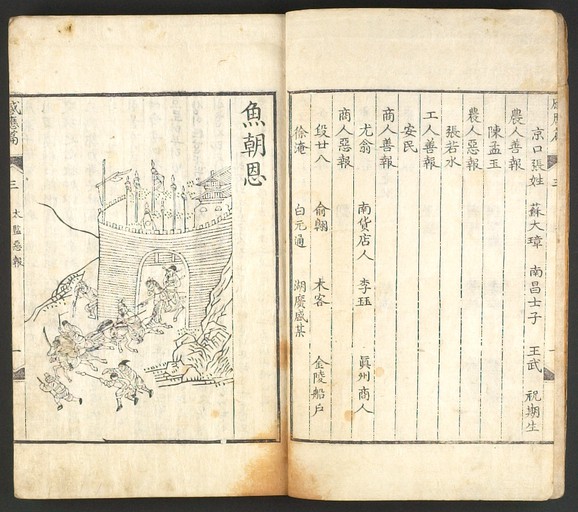 京口張姓 蘇大璋 南昌士子 王武 祝期生
農人善報
陳孟玉
農人惡報
張若水
工人善報
安民
商人善報
尤翁 南貨店人 李珏 眞州商人
商人惡報
段廿八 俞翱 木客 金陵船戶
徐淹 白元通 湖廣盛某
魚朝恩
感應篇
三
太監惡報